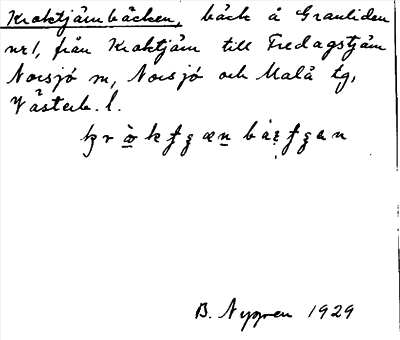 Kroktjärnbäcken, bäck å Granliden
nr 1, från Kroktjärn till Fredagstjärn
Norsjö sn, Norsjö och Malå tg,
Västerb. l.
B. Nygren 1929